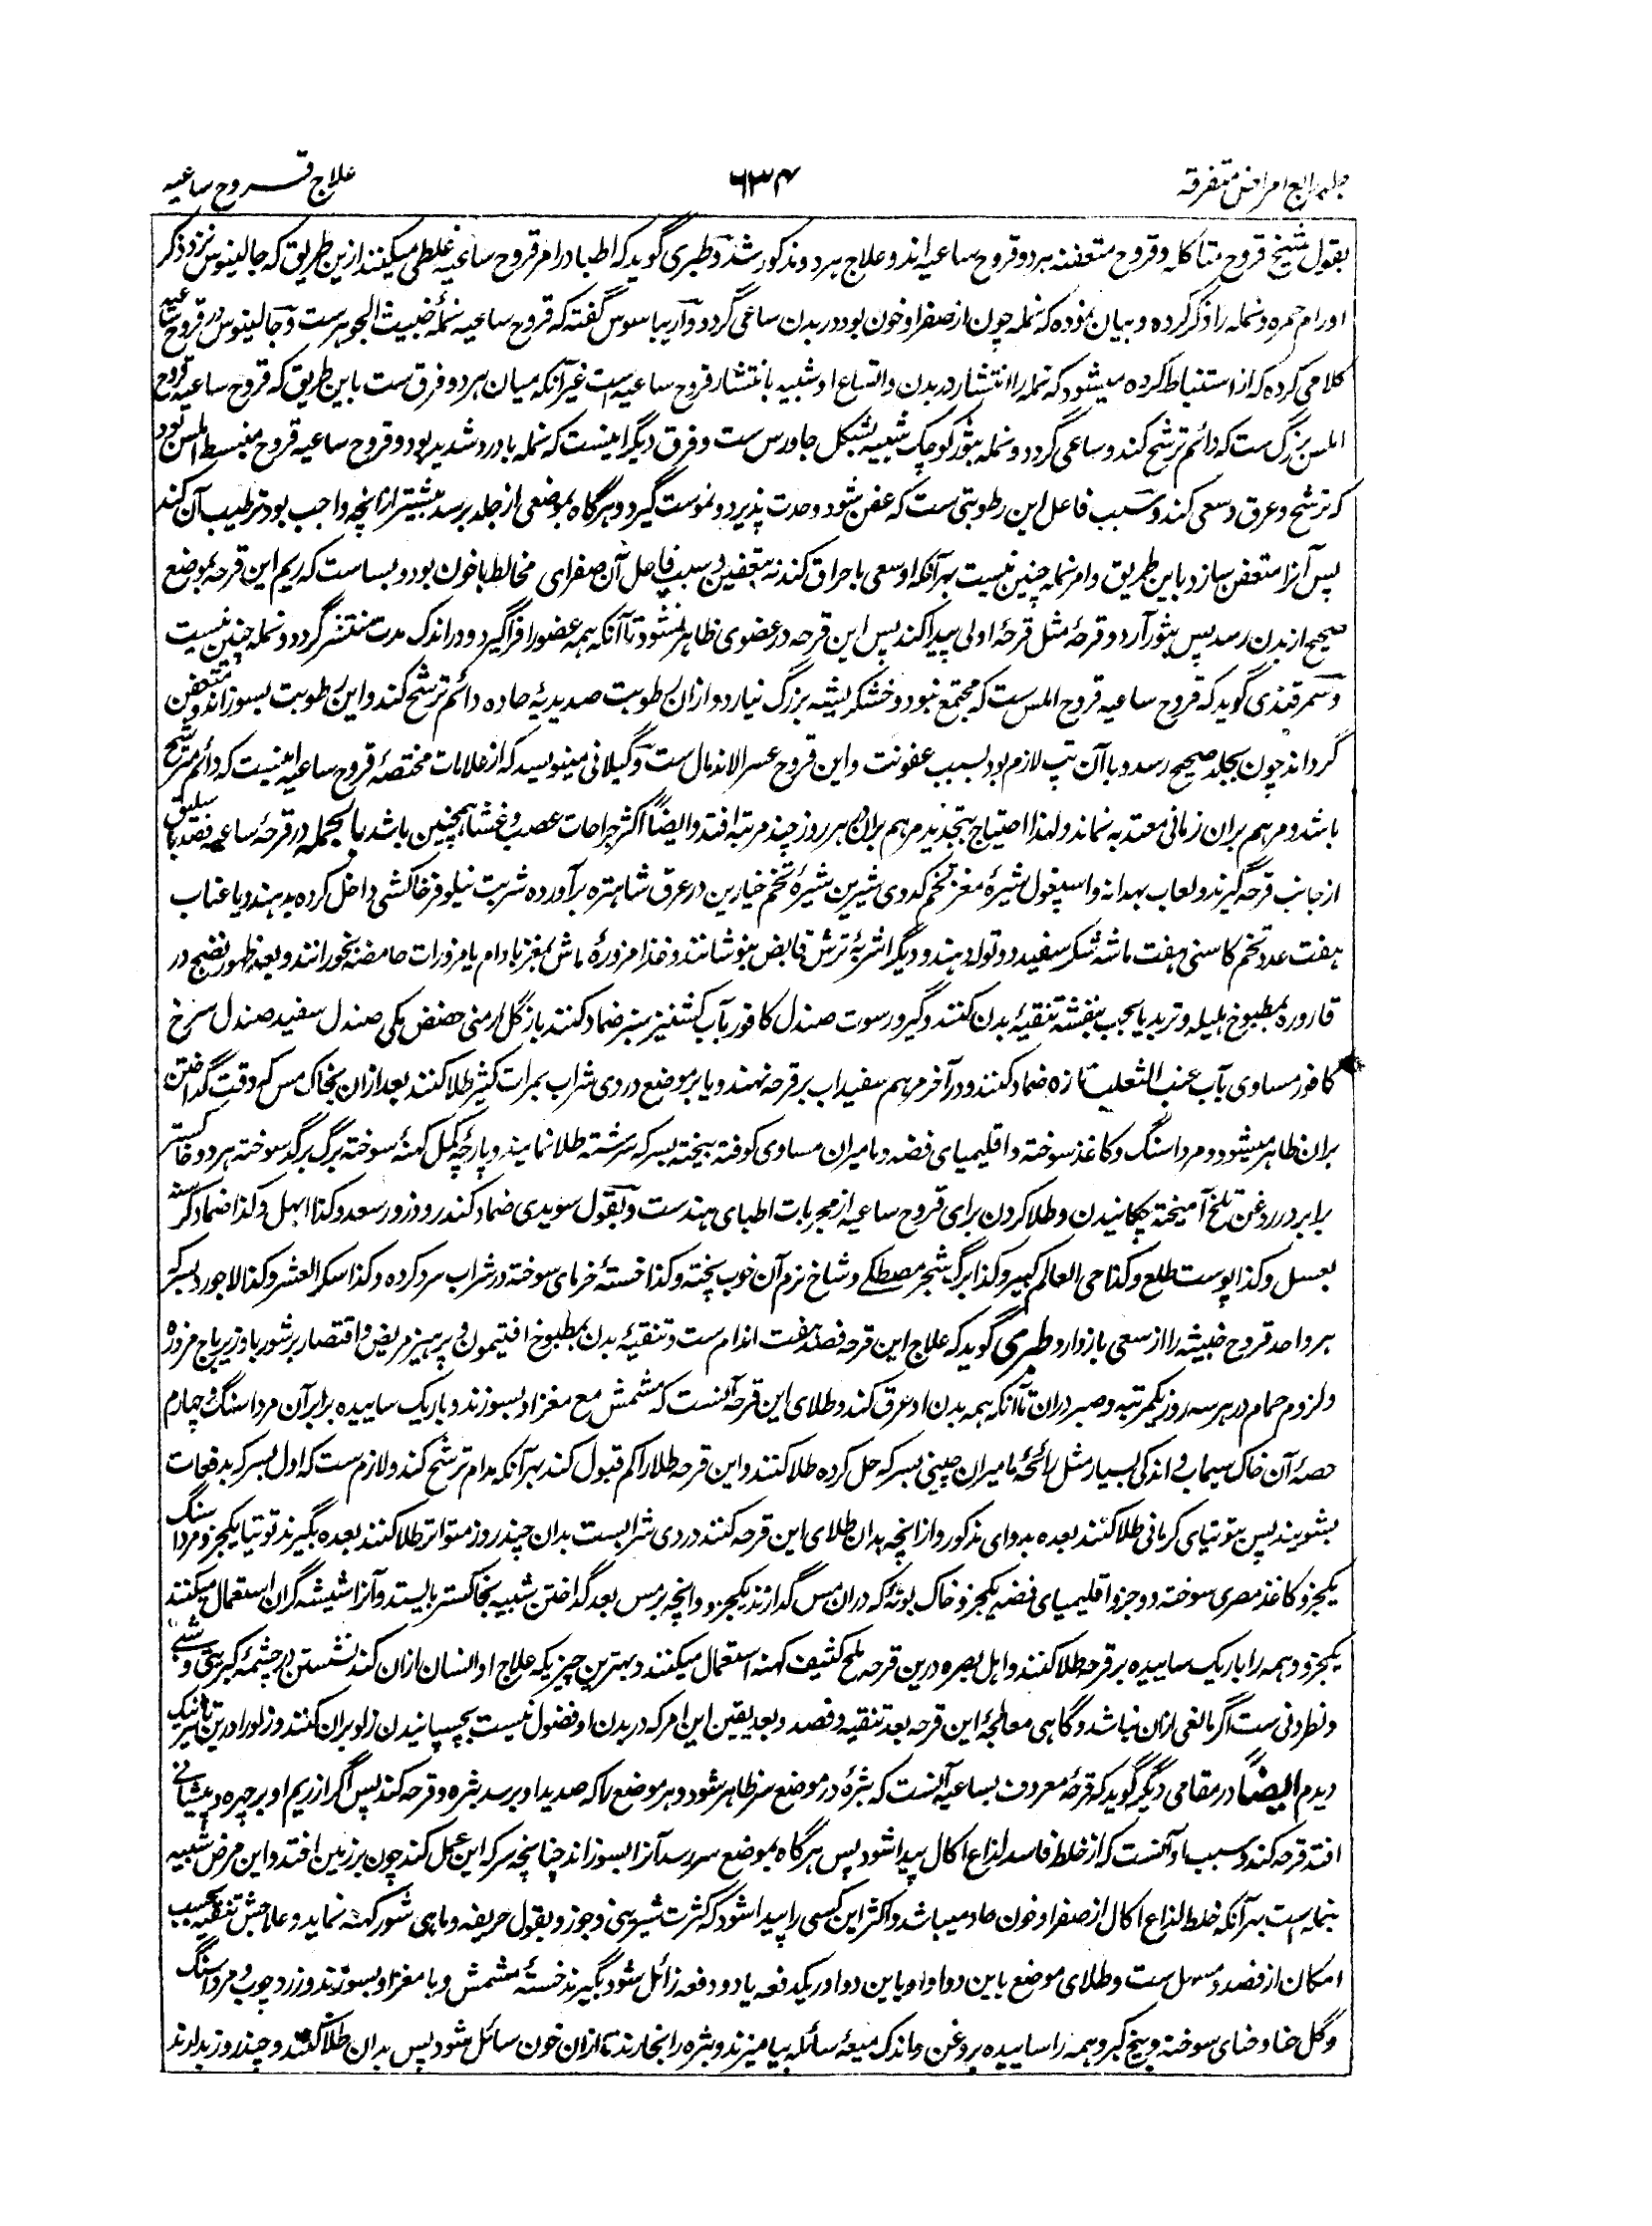 جلد رابع امراض متفرقه
۶۳۴
علاج قروح ساعیه
بقول شیخ قروح متاکله و قروح متعفنه هردو قروح ساعیه اند و علاج هردو مذکور شد و طبری گوید که اطبا در امر قروح ساعیه غلطی میکنند ازین طریق که جالینوس نزد ذکر
اورام حمره و نمله را ذکر کرده و بیان نموده که نمله چون از صفرا و خون بود در بدن ساعی گردد و آریباسوس گفته که قروح ساعیه نملهٔ خبیث الجوهرست و جالینوس در قروح ساعیه
کلامی کرده که از استنباط کرده میشود که نمله را انتشار در بدن و اتساع او شبیه بانتشار قروح ساعیه است غیر آنکه میان هردو فرق ست باین طریق که قروح ساعیه قروح
املس بزرگ ست که دائم ترشح کند و ساعی گردد و نمله بثور کوچک شبیه بشکل جاورس ست و فرق دیگر اینست که نمله با درد شدید بود و قروح ساعیه قروح منبسط املس بود
که ترشح و عرق و سعی کند و سبب فاعل این رطوبتی ست که عفن شود و حدت پذیرد و نموست گیرد و هرگاه بموضعی از جلد برسد بیشتر ازانچه واجب بود ترطیب آن کند
پس آنرا متعفن سازد باین طریق و امر نمله چنین نیست بهر آنکه او سعی باحراق کند نه بتعفین و سبب فاعل آن صفرای مخالط با خون بود و بساست که ریم این قرحه بموضع
صحیح از بدن رسد پس بثور آرد و قرحهٔ مثل قرحهٔ اولی پیدا کند پس این قرحه در عضوی ظاهر نشود تا آنکه همه عضو را فراگیرد و در اندک مدت منتشر گردد و نمله چنین نیست
و سمرقندی گوید که قروح ساعیه قروح املس ست که مجتمع نبود و خشکریشه بزرگ نیارد و ازان رطوبت صدیدیهٔ حاده دائم ترشح کند و این رطوبت بسوزاند و متعفن
گرداند چون بجلد صحیح رسد و با آن تپ لازم بود بسبب عفونت و این قروح عسر الاندمال ست و گیلانی مینویسد که از علامات مختصهٔ قروح ساعیه اینست که دائم مترشح
باشد و مرهم بران زمانی معتد به نماند و لهذا احتیاج بتجدید مرهم بران هر روز چند مرتبه افتد و ایضاً اکثر جراحات عصب و غشا همچنین باشد بالجمله در قرحهٔ ساعیه فصد باسلیق
از جانب قرحه گیرند و لعاب بهدانه و اسپغول شیرهٔ مغز تخم کدوی شیرین شیرهٔ تخم خیارین در عرق شاهتره برآورده شربت نیلوفر خاکشی داخل کرده بدهند و یا عناب
هفت عدد تخم کاسنی هفت ماشه شکر سفید دو توله دهند و دیگر اشربهٔ ترش قابض بنوشانند و غذا مزورهٔ ماش بمغز بادام یا مزورات حامضه بخورانند و بعد ظهور نضج در
قاروره بمطبوخ هلیله و تربد یا بحب بنفشه تنقیهٔ بدن کنند و گیرو رسوت صندل کافور بآب کشنیز سبز ضماد کنند یا گل ارمنی حضض مکی صندل سفید صندل سرخ
کافور مساوی بآب عنب الثعلب تازه ضماد کنند و در آخر مرهم سفیداب بر قرحه نهند و یا بر موضع دردی شراب بمرات کثیر طلا کنند بعد ازان بخاک مس که وقت گداختن
بران ظاهر میشود و مرداسنگ و کاغذ سوخته و اقلیمیای فضه و مامیران مساوی کوفته بیخته بسرکه سرشته طلا نمایند و پارچه کمل کهنهٔ سوخته برگ برگد سوخته هردو خاکستر
برابر در روغن تلخ آمیخته چکانیدن و طلا کردن برای قروح ساعیه از مجربات اطبای هندست و بقول سویدی ضماد کندر و ذرور سعد و کذا ابهل و کذا ضماد کرسنه
بعسل و کذا پوست طلع و کذا حی العالم کبیر و کذا برگ شجر مصطکی و شاخ نرم آن خوب پخته و کذا خستهٔ خرمای سوخته در شراب سرد کرده و کذا سکر العشر و کذا لاجورد بسرکه
هر واحد قروح خبیثه را از سعی بازدارد و طبری گوید که علاج این قرحه فصد هفت اندام ست و تنقیهٔ بدن بمطبوخ افتیمون و پرهیز مریض و اقتصار بر شوربا و زیرباج مزوره
و لزوم حمام در هر سه روز یکمرتبه و صبر دران تا آنکه همه بدن او عرق کند و طلای این قرحه آنست که مشمش مع مغز او بسوزند و باریک ساییده برابر آن مرداسنگ و چهارم
حصهٔ آن خاک سیماب و اندکی بسیار مثل رائحه مامیران چینی بسرکه حل کرده طلا کنند و این قرحه طلا را کم قبول کند بهر آنکه مدام ترشح کند و لازم ست که اول بسرکه بدفعات
بشویند پس بتوتیای کرمانی طلا کنند بعده بدوای مذکور و ازانچه بدان طلای این قرحه کنند دردی شرابست بدان چند روز متواتر طلا کنند بعده بگیرند توتیا یکجزو مرداسنگ
یکجزو کاغذ مصری سوخته دو جزو اقلیمیای فضه یکجزو خاک بوتهٔ که دران مس گدازند یکجزو و انچه بر مس بعد گداختن شبیه بخاکستر بالیستد و آنرا شیشه گران استعمال میکنند
یکجزو و همه را باریک ساییده بر قرحه طلا کنند و اهل بصره درین قرحه ملح کثیف کهنه استعمال میکنند و بهترین چیزیکه علاج او انسان ازان کند نشستن در چشمهٔ کبریتی و شبی
و نطرونی ست اگر مانعی ازان نباشد و گاهی معالجهٔ این قرحه بعد تنقیه و فصد و بعد یقین این امر که در بدن او فضول نیست بچسپانیدن زلو بران کنند و زلو را درین تاثیر نیک
دیدم ایضاً در مقامی دیگر گوید که قرحهٔ معروف بساعیه آنست که بثرهٔ در موضع سر ظاهر شود و هر موضع را که صدید او برسد بثره و قرحه کند پس اگر از ریم او بر چهره و پیشانی
افتد قرحه کند و سبب او آنست که از خلط فاسد لذاع اکال پیدا شود پس هرگاه بموضع سر رسد آنرا بسوزاند چنانچه سرکه این عمل کند چون بر زمین افتد و این مرض شبیه
بنمله است بهر آنکه خلط لذاع اکال از صفرا و خون حاد میباشد و اکثر این کسی را پیدا شود که کثرت شیرینی و جوز و بقول حریفه و ماهی شور کهنه نماید و علاجش تنقیه بحسب
امکان از فصد و مسهل ست و طلای موضع باین دوا و او باین دوا در یکدفعه یا دو دفعه زائل شود بگیرند خستهٔ مشمش و با مغز او بسوزند و زرد چوب و مرداسنگ
و گل حنا و حنای سوخته و بیخ کبر و همه را ساییده بروغن و اندک میعهٔ سائله بیامیزند و بثره را بخارند تا ازان خون سائل شود پس بدان طلا کنند و چند روز بدارند